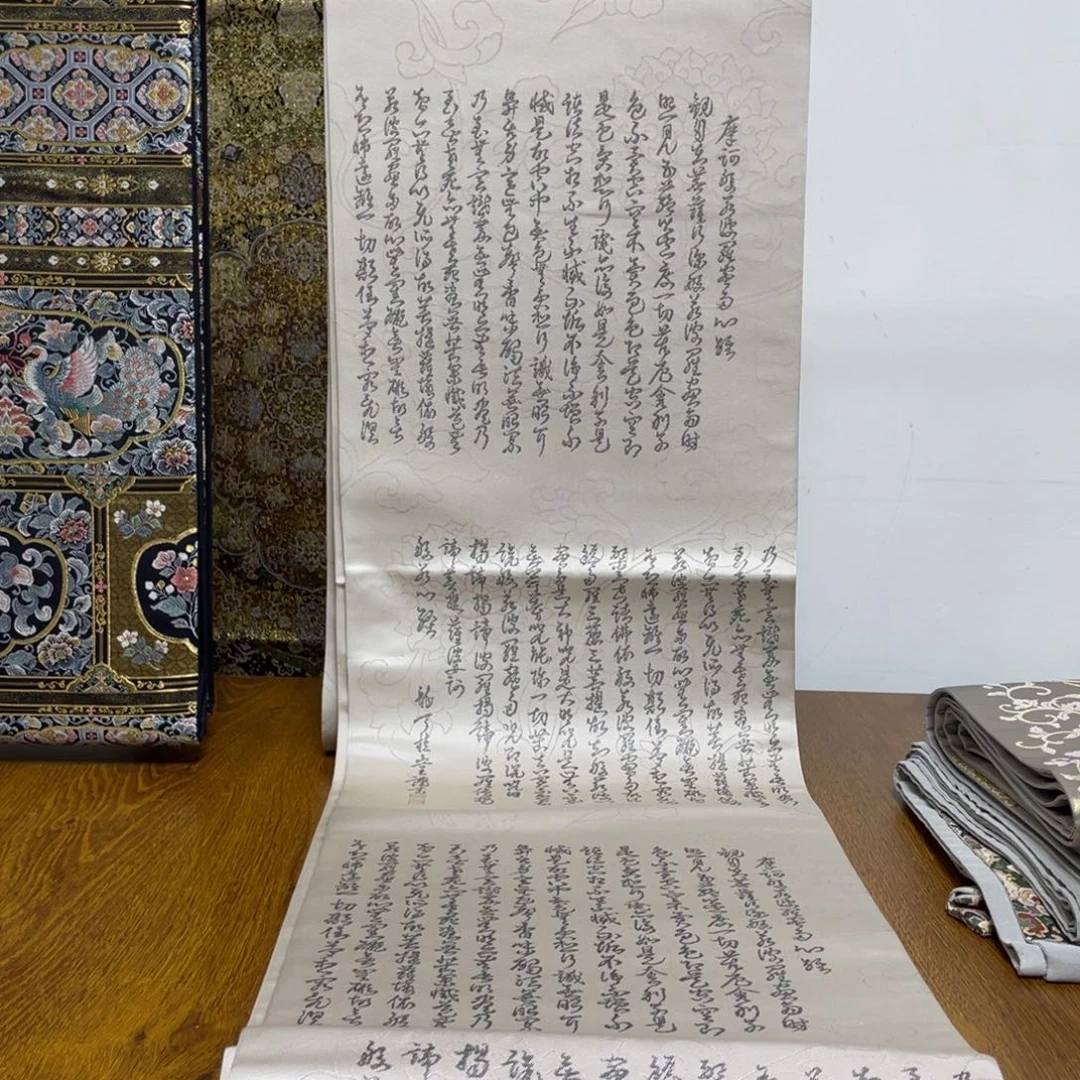 摩訶般若波羅蜜多心経
觀自在菩薩行深般若波羅蜜多時
照見五蘊皆空度一切苦厄舍利子
色不異空空不異色色即是空空即
是色受想行識亦復如是舍利子是
諸法空相不生不滅不垢不淨不增不
減是故空中無色無受想行識無眼耳
鼻舌身意無色聲香味觸法無眼界
乃至無意識界無無明亦無無明盡乃
至無老死亦無老死盡無苦集滅道無
智亦無得以無所得故菩提薩埵依般
若波羅蜜多故心無罣礙無罣礙故無
有恐怖遠離一切顛倒夢想究竟涅
乃至無意識界無無明亦無無明盡乃
至無老死亦無老死盡無苦集滅道無
智亦無得以無所得故菩提薩埵依般
若波羅蜜多故心無罣礙無罣礙故無
有恐怖遠離一切顛倒夢想究竟涅
槃三世諸佛依般若波羅蜜多故得阿
耨多羅三藐三菩提故知般若波羅
蜜多是大神咒是大明咒是無上咒是
無等等咒能除一切苦真實不虛故
說般若波羅蜜多咒即說咒曰
揭諦揭諦波羅揭諦波羅僧揭
諦菩提薩婆訶
般若心経
摩訶般若波羅蜜多心経
觀自在菩薩行深般若波羅蜜多時
照見五蘊皆空度一切苦厄舍利子
色不異空空不異色色即是空空即
是色受想行識亦復如是舍利子是
諸法空相不生不滅不垢不淨不增不
減是故空中無色無受想行識無眼耳
鼻舌身意無色聲香味觸法無眼界
乃至無意識界無無明亦無無明盡乃
至無老死亦無老死盡無苦集滅道無
智亦無得以無所得故菩提薩埵依般
若波羅蜜多故心無罣礙無罣礙故無
有恐怖遠離一切顛倒夢想究竟涅
說
揭
諦
般